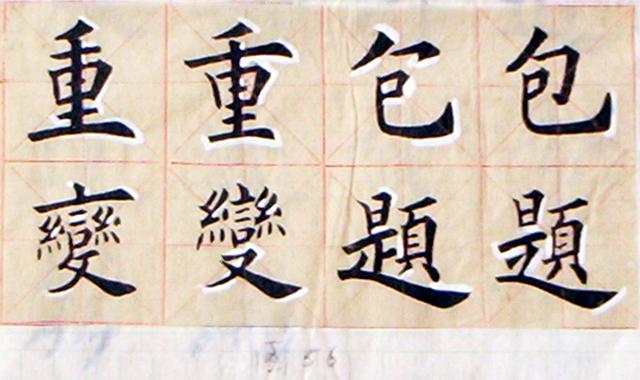 包題
包題
重變
重變
56